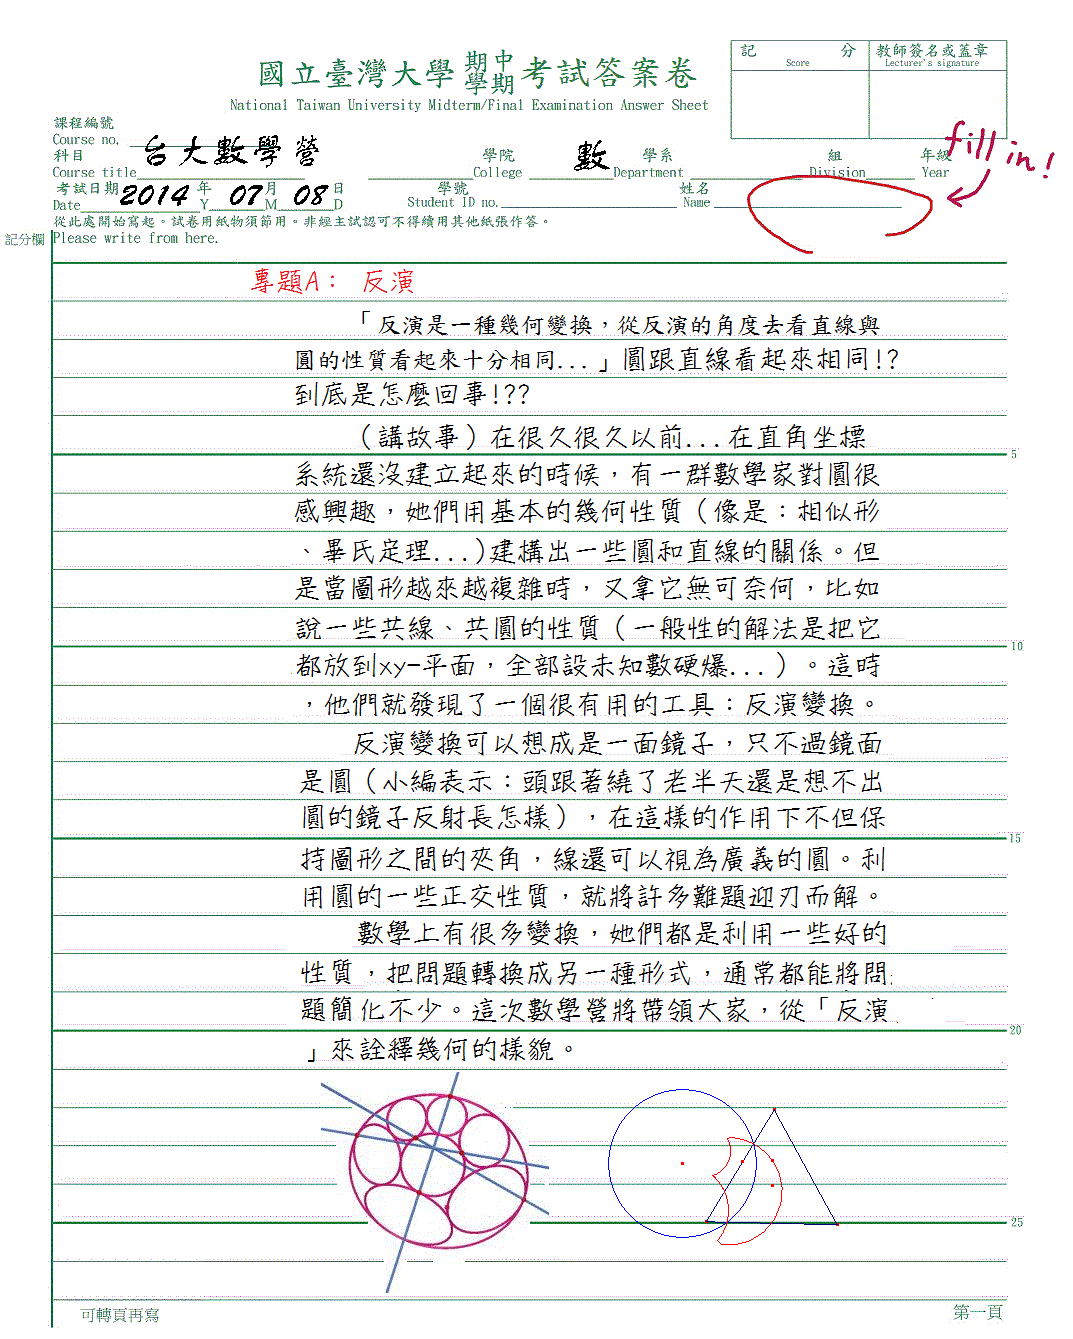 國立臺灣大學 期中 學期 考試答案卷
National Taiwan University Midterm/Final Examination Answer Sheet
記 分
Score
教師簽名或蓋章
Lecturer's signature
課程編號
Course no.
科目
Course title
台大數學營
學院
College
數
學系
Department
組
Division
年級
Year
fill in!
考試日期
Date
2014 年 07 月 08 日
Y M D
學號
Student ID no.
姓名
Name
從此處開始寫起。試卷用紙物須節用。非經主試認可不得續用其他紙張作答。
記分欄
Please write from here.
專題A： 反演
「反演是一種幾何變換，從反演的角度去看直線與
圓的性質看起來十分相同...」圓跟直線看起來相同!?
到底是怎麼回事!??
（講故事）在很久很久以前...在直角坐標
5
系統還沒建立起來的時候，有一群數學家對圓很
感興趣，她們用基本的幾何性質（像是：相似形
、畢氏定理...)建構出一些圓和直線的關係。但
是當圖形越來越複雜時，又拿它無可奈何，比如
說一些共線、共圓的性質（一般性的解法是把它
10
都放到xy-平面，全部設未知數硬爆...）。這時
，他們就發現了一個很有用的工具：反演變換。
反演變換可以想成是一面鏡子，只不過鏡面
是圓（小編表示：頭跟著繞了老半天還是想不出
圓的鏡子反射長怎樣），在這樣的作用下不但保
15
持圖形之間的夾角，線還可以視為廣義的圓。利
用圓的一些正交性質，就將許多難題迎刃而解。
數學上有很多變換，她們都是利用一些好的
性質，把問題轉換成另一種形式，通常都能將問
題簡化不少。這次數學營將帶領大家，從「反演
20
」來詮釋幾何的樣貌。
25
可轉頁再寫
第一頁